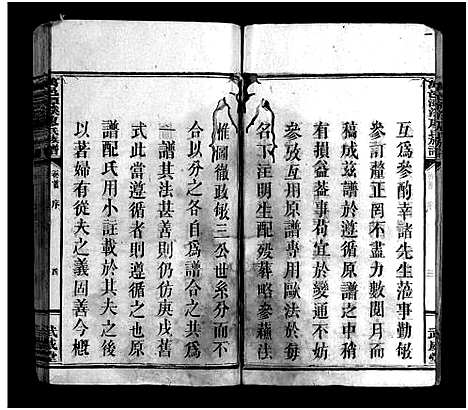 互爲參酌幸諸先生蒞事勤敏
參訂釐正罔不盡力數閱月而
稿成茲譜於遵循原譜之中稍
有損益葢事苟宜於變通不妨
參放互用原譜專用歐法於諱
名下注明生配歿葬略參蘇注
惟國徹政敏三公世系分而不
合以分之各自爲譜合之共爲
一譜其法甚善則仍庚戌舊
式此當遵循者則遵循之也原
譜配氏用小註載於其夫之後
以著婦有從夫之義固善今槪
卷首 序
四
武威堂